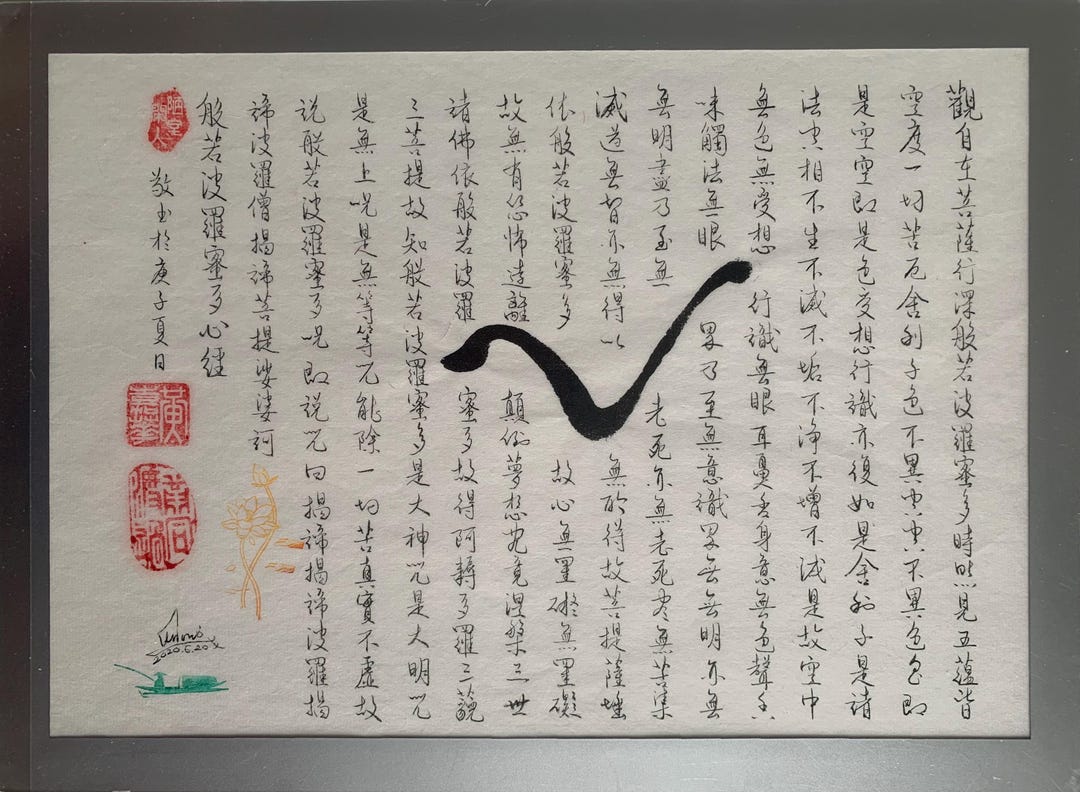 觀自在菩薩行深般若波羅蜜多時照見五蘊皆
空度一切苦厄舍利子色不異空空不異色色即
是空空即是色受想行識亦復如是舍利子是諸
法空相不生不滅不垢不淨不增不減是故空中
無色無受想行識無眼耳鼻舌身意無色聲香
味觸法無眼界乃至無意識界無無明亦無
無明盡乃至無老死亦無老死盡無苦集
滅道無智亦無得以無所得故菩提薩埵
依般若波羅蜜多故心無罣礙無罣礙
故無有恐怖遠離顛倒夢想究竟涅槃三世
諸佛依般若波羅蜜多故得阿耨多羅三藐
三菩提故知般若波羅蜜多是大神咒是大明咒
是無上咒是無等等咒能除一切苦真實不虛故
說般若波羅蜜多咒即說咒曰揭諦揭諦波羅揭
諦波羅僧揭諦菩提娑婆訶
般若波羅蜜多心經
敬書於庚子夏日
2020.6.20